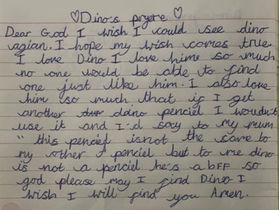 ♡Dino's pryere♡
Dear God I wish I could see dino
agian. I hope my wish comes true.
I love Dino I love hime so much
no one would be able to find
one just like him. I also love
him so much that if I get
another dino penciel I wouldn't
use it and I'd say to my mum
" this penciel isnot the same to
my other penciel but to me dino
is not a penciel he's a bff so
god please may I find Dino I
wish I will find you Amen.